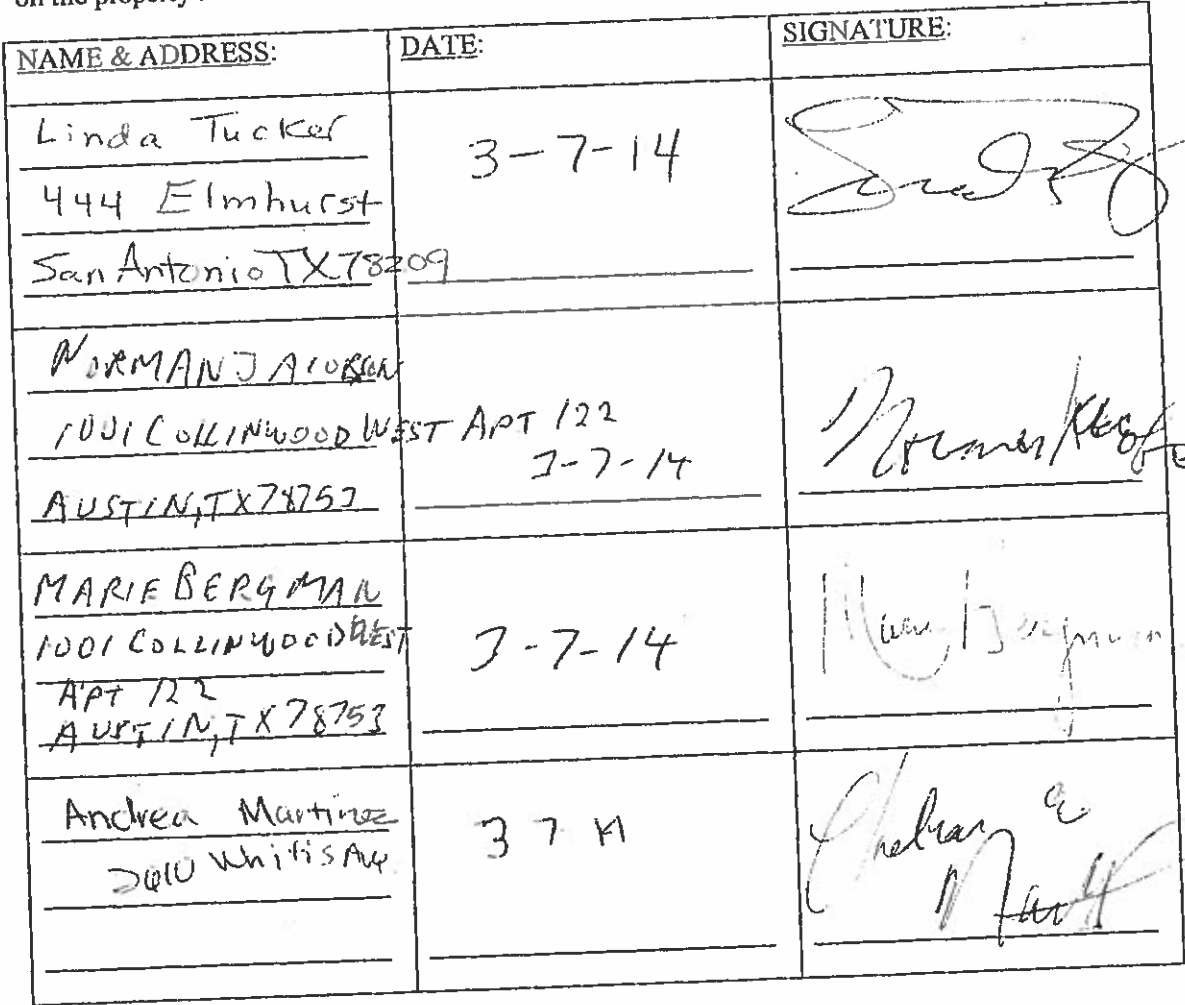 on the property
NAME & ADDRESS: DATE: SIGNATURE:
Linda Tucker
3-7-14
444 Elmhurst
San Antonio TX 78209
NORMAN JACOBSON
1001 COLLINWOOD WEST APT 122
3-7-14
AUSTIN, TX 78753
MARIE BERGMAN
1001 COLLINWOOD WEST
3-7-14
APT 122
AUSTIN, TX 78753
Andrea Martinez
3 7 14
Whitis Ave